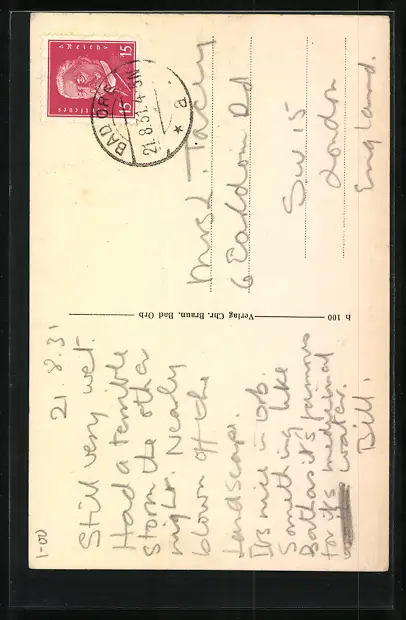 1-00
21.8.31
Still very wet.
Had a terrible
storm the other
night. Nearly
blown off the
landscape.
Its nice in Orb.
Something like
Bath as it's famous
for its medicinal
water.
Bill.
h 100 Verlag Chr. Braun, Bad Orb
Deutsches Reich
15 15
BAD ORB
21.8.31.4-5N
* a
Mrs L. Tacey
6 Earldom Rd
SW 15
London
England.